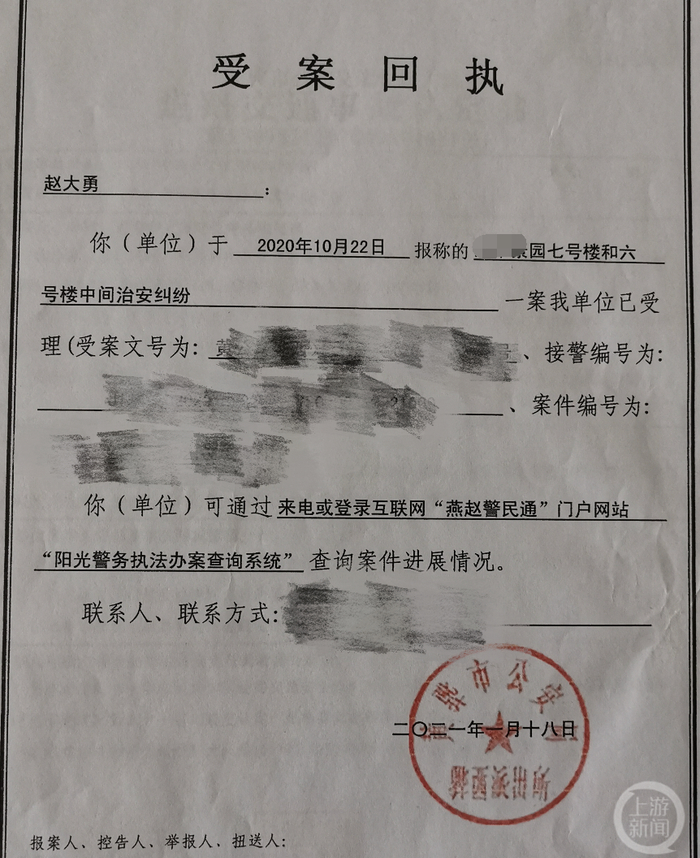 受案回执
赵大勇:
你(单位)于 2020年10月22日 报称的 景园七号楼和六
号楼中间治安纠纷 一案我单位已受
理(受案文号为: 号、接警编号为:
、案件编号为:
你(单位)可通过来电或登录互联网“燕赵警民通”门户网站
“阳光警务执法办案查询系统”查询案件进展情况。
联系人、联系方式:
黄骅市公安局
二〇二一年一月十八日
派出所
报案人、控告人、举报人、扭送人:
上游新闻